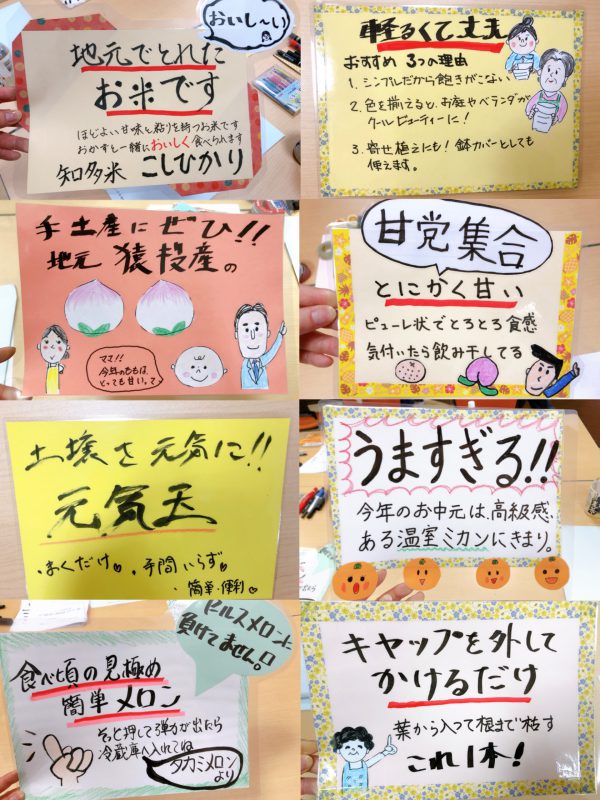 おいし～い
地元でとれた
お米です
ほどよい甘味と粘りを持つお米です
おかずと一緒においしく食べられます
知多米 こしひかり
軽るくて丈夫
おすすめ 3つの理由
1. シンプルだから飽きがこない
2. 色を揃えると、お庭やベランダが
クールビューティーに！
3. 寄せ植えにも！鉢カバーとしても
使えます。
手土産にぜひ!!
地元 猿投産の
ママ!!
今年のももは、
とっても甘いって
甘党集合
とにかく甘い
ピューレ状でとろとろ食感
気付いたら飲み干してる
土壌を元気に!!
元気玉
・まくだけ
・手間いらず
・簡単・便利
うますぎる!!
今年のお中元は、高級感
ある温室ミカンにきまり。
マルスメロンに
負けてません!
食べ頃の見極め
簡単メロン
そっと押して弾力が出たら
冷蔵庫へ入れてね
タカミメロン
より
キャップを外して
かけるだけ
葉から入って根まで枯す
これ1本！